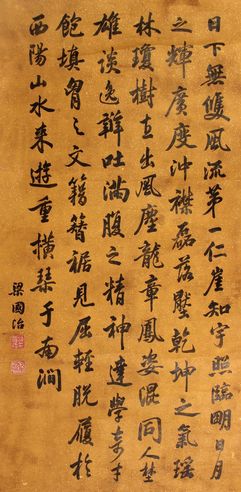 日下無雙風流第一仁崖知宇照臨明日月
之輝廣度沖襟磊落壓乾坤之氣瑶
林瓊樹直出風塵龍章鳳姿混同人埜
雄談逸辯吐滿腹之精神達學奇才
飽填胷之文籍簪裾見屈輕脫履於
西陽山水來遊重橫琴于南澗
梁國治